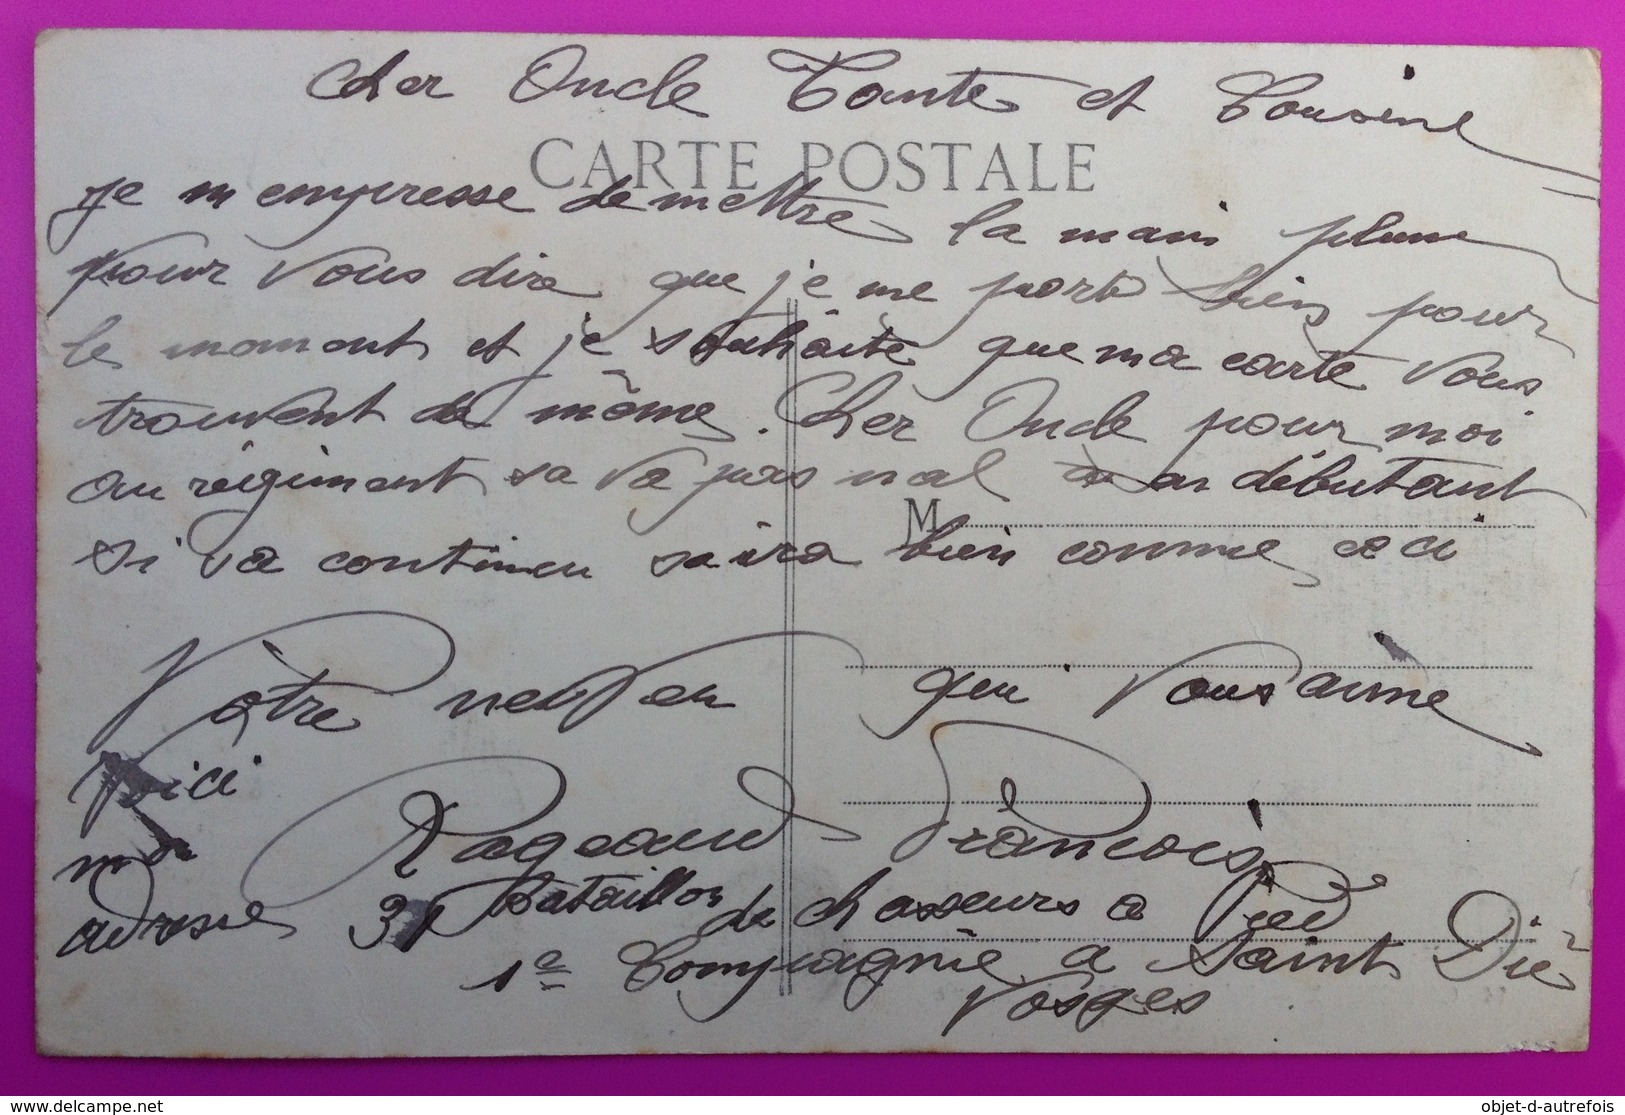 Cher Oncle Tante et Cousine
CARTE POSTALE
Je m empresse de mettre la main plume
pour vous dire que je me porte bien pour
le moment et je souhaite que ma carte vous
trouvent de même. Cher Oncle pour moi
au régiment sa va pas mal en débutant
si va continu saira bien comme ceci
M
Votre neuveu qui vous aime
Voici
mon Rageaud François
adresse 31 Bataillon de chasseurs a Pied
1e Compagnie a Saint Dié
Vosges
www.delcampe.net
objet-d-autrefois